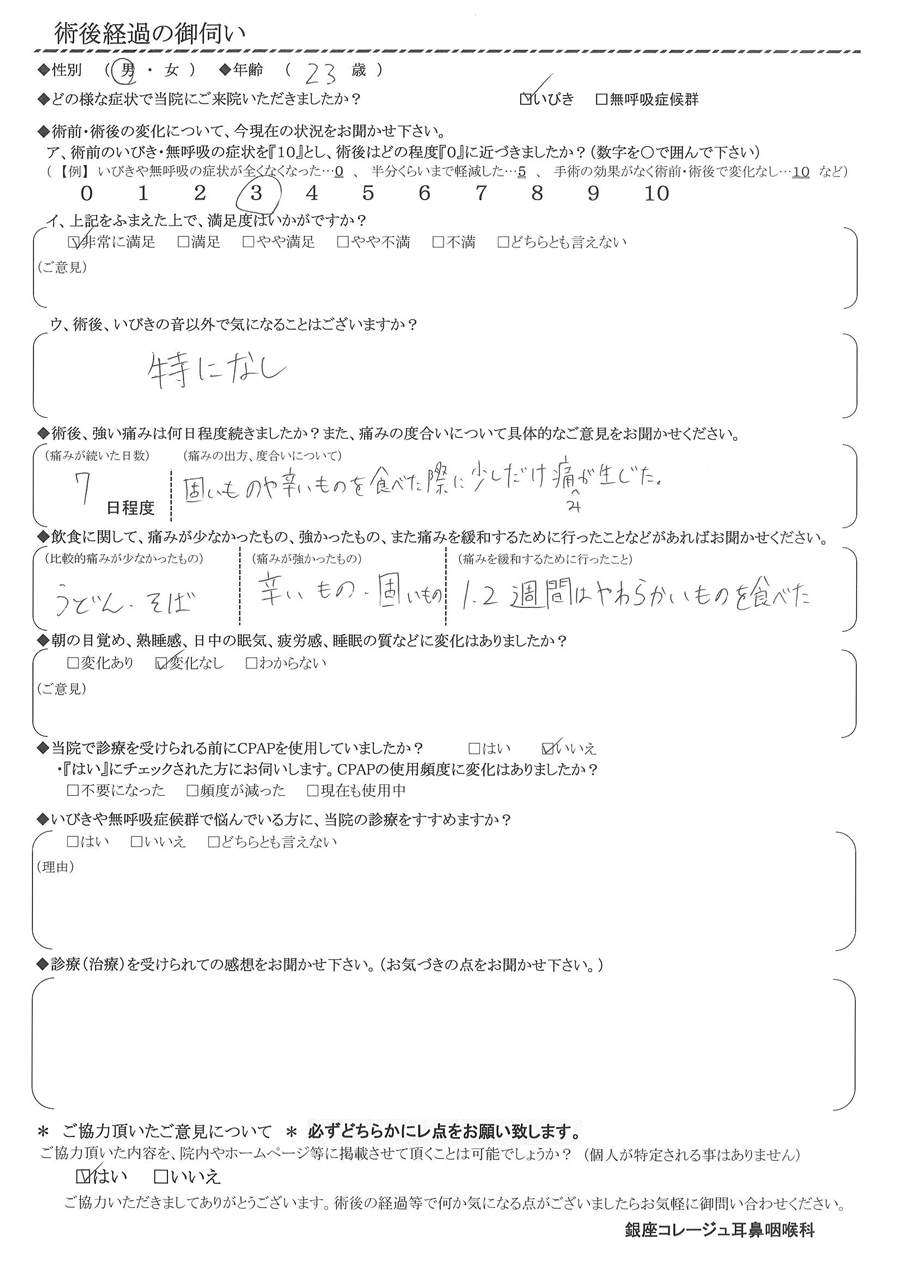 術後経過の御伺い
◆性別 （ 男 ・ 女 ） ◆年齢 （ 23 歳 ）
◆どの様な症状で当院にご来院いただきましたか？ ☑いびき □無呼吸症候群
◆術前・術後の変化について、今現在の状況をお聞かせ下さい。
ア、術前のいびき・無呼吸の症状を『10』とし、術後はどの程度『0』に近づきましたか？（数字を〇で囲んで下さい）
（【例】 いびきや無呼吸の症状が全くなくなった…0 、 半分くらいまで軽減した…5 、 手術の効果がなく術前・術後で変化なし…10 など）
0 1 2 3 4 5 6 7 8 9 10
イ、上記をふまえた上で、満足度はいかがですか？
☑非常に満足 □満足 □やや満足 □やや不満 □不満 □どちらとも言えない
（ご意見）
ウ、術後、いびきの音以外で気になることはございますか？
特になし
◆術後、強い痛みは何日程度続きましたか？また、痛みの度合いについて具体的なご意見をお聞かせください。
（痛みが続いた日数） （痛みの出方、度合いについて）
7 日程度 固いものや辛いものを食べた際に少しだけ痛みが生じた。
◆飲食に関して、痛みが少なかったもの、強かったもの、また痛みを緩和するために行ったことなどがあればお聞かせください。
（比較的痛みが少なかったもの） （痛みが強かったもの） （痛みを緩和するために行ったこと）
うどん・そば 辛いもの・固いもの 1.2週間はやわらかいものを食べた
◆朝の目覚め、熟睡感、日中の眠気、疲労感、睡眠の質などに変化はありましたか？
□変化あり ☑変化なし □わからない
（ご意見）
◆当院で診療を受けられる前にCPAPを使用していましたか？ □はい ☑いいえ
・『はい』にチェックされた方にお伺いします。CPAPの使用頻度に変化はありましたか？
□不要になった □頻度が減った □現在も使用中
◆いびきや無呼吸症候群で悩んでいる方に、当院の診療をすすめますか？
□はい □いいえ □どちらとも言えない
（理由）
◆診療（治療）を受けられての感想をお聞かせ下さい。（お気づきの点をお聞かせ下さい。）
＊ ご協力頂いたご意見について ＊ 必ずどちらかにレ点をお願い致します。
ご協力頂いた内容を、院内やホームページ等に掲載させて頂くことは可能でしょうか？ （個人が特定される事はありません）
☑はい □いいえ
ご協力いただきましてありがとうございます。術後の経過等で何か気になる点がございましたらお気軽に御問い合わせください。
銀座コレージュ耳鼻咽喉科